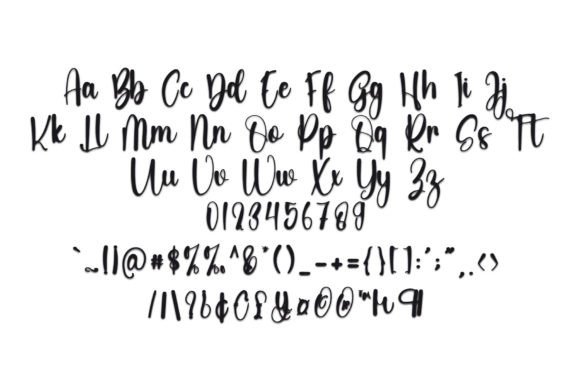 Aa Bb Cc Dd Ee Ff Gg Hh Ii Jj
Kk Ll Mm Nn Oo Pp Qq Rr Ss Tt
Uu Vv Ww Xx Yy Zz
0123456789
`~!|@#$%%^&*()_-+={}[]:';",.<>
/|\?¢£¥¤©®™¶